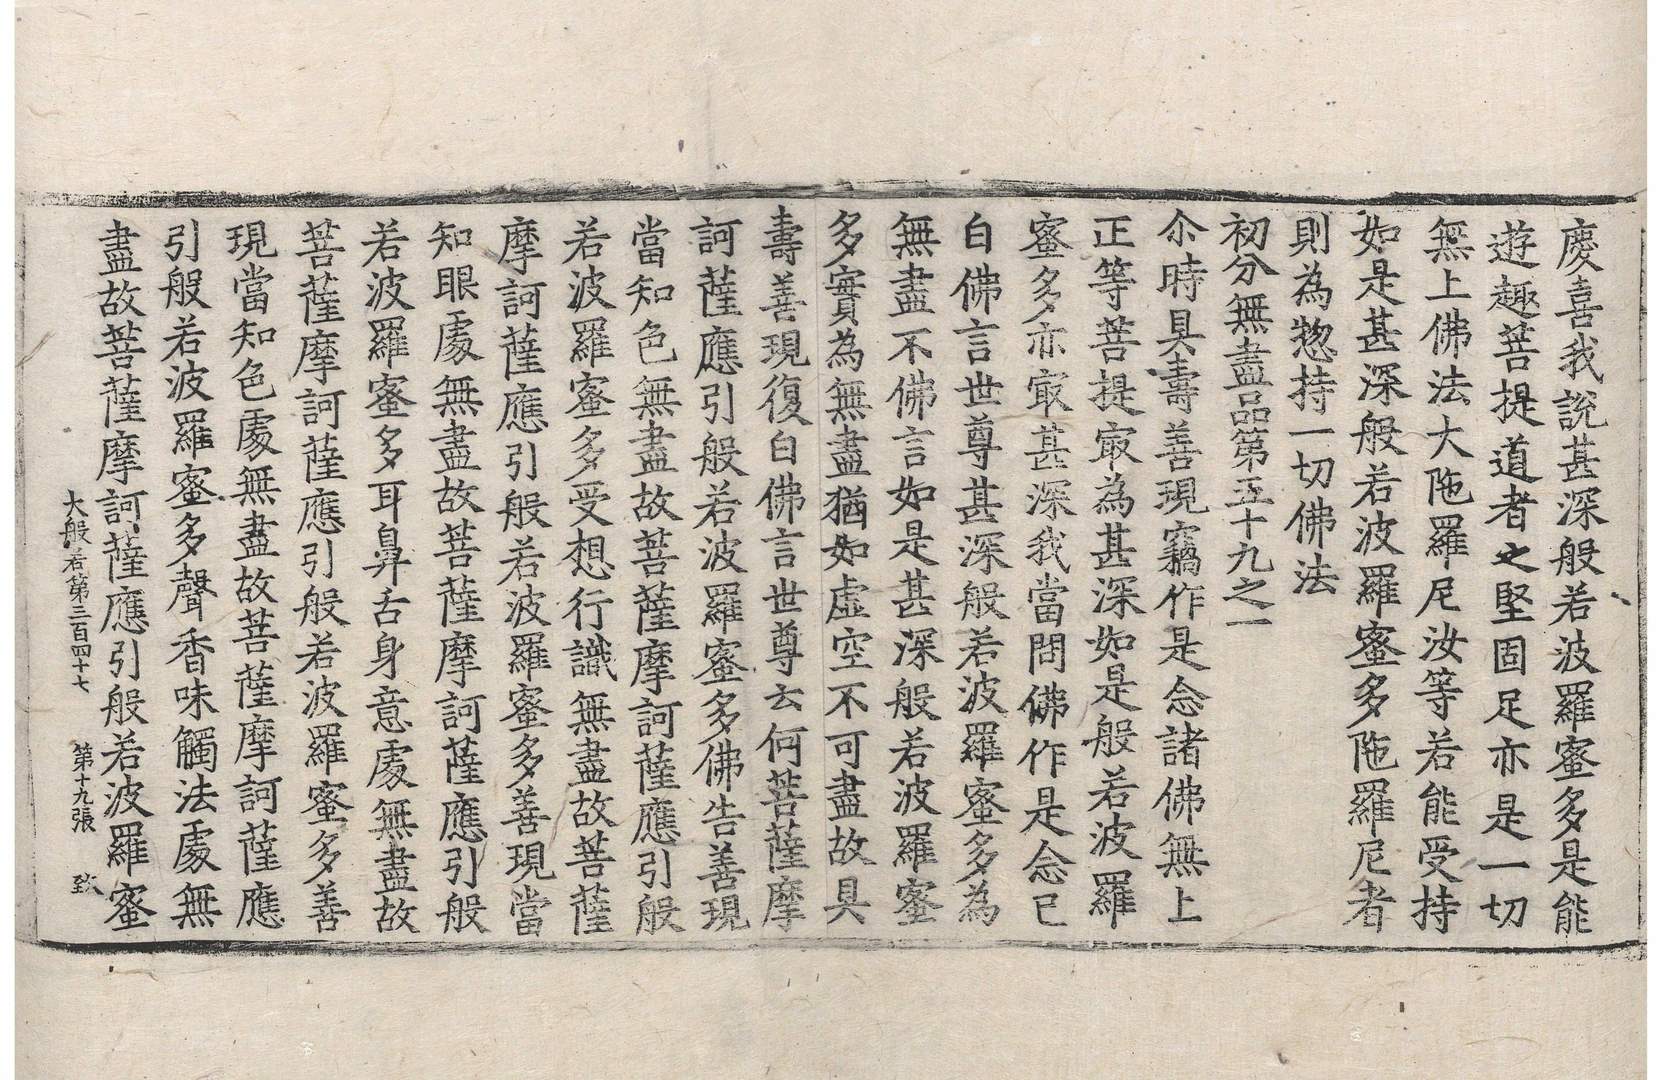 慶喜我説甚深般若波羅蜜多是能
遊趣菩提道者之堅固足亦是一切
無上佛法大陁羅尼汝等若能受持
如是甚深般若波羅蜜多陁羅尼者
則為惣持一切佛法
初分無盡品第五十九之一
尒時具壽善現竊作是念諸佛無上
正等菩提冣為甚深如是般若波羅
蜜多亦冣甚深我當問佛作是念已
白佛言世尊甚深般若波羅蜜多為
無盡不佛言如是甚深般若波羅蜜
多實為無盡猶如虛空不可盡故具
壽善現復白佛言世尊云何菩薩摩
訶薩應引般若波羅蜜多佛告善現
當知色無盡故菩薩摩訶薩應引般
若波羅蜜多受想行識無盡故菩薩
摩訶薩應引般若波羅蜜多善現當
知眼處無盡故菩薩摩訶薩應引般
若波羅蜜多耳鼻舌身意處無盡故
菩薩摩訶薩應引般若波羅蜜多善
現當知色處無盡故菩薩摩訶薩應
引般若波羅蜜多聲香味觸法處無
盡故菩薩摩訶薩應引般若波羅蜜
大般若第三百四十七 第十九張 致